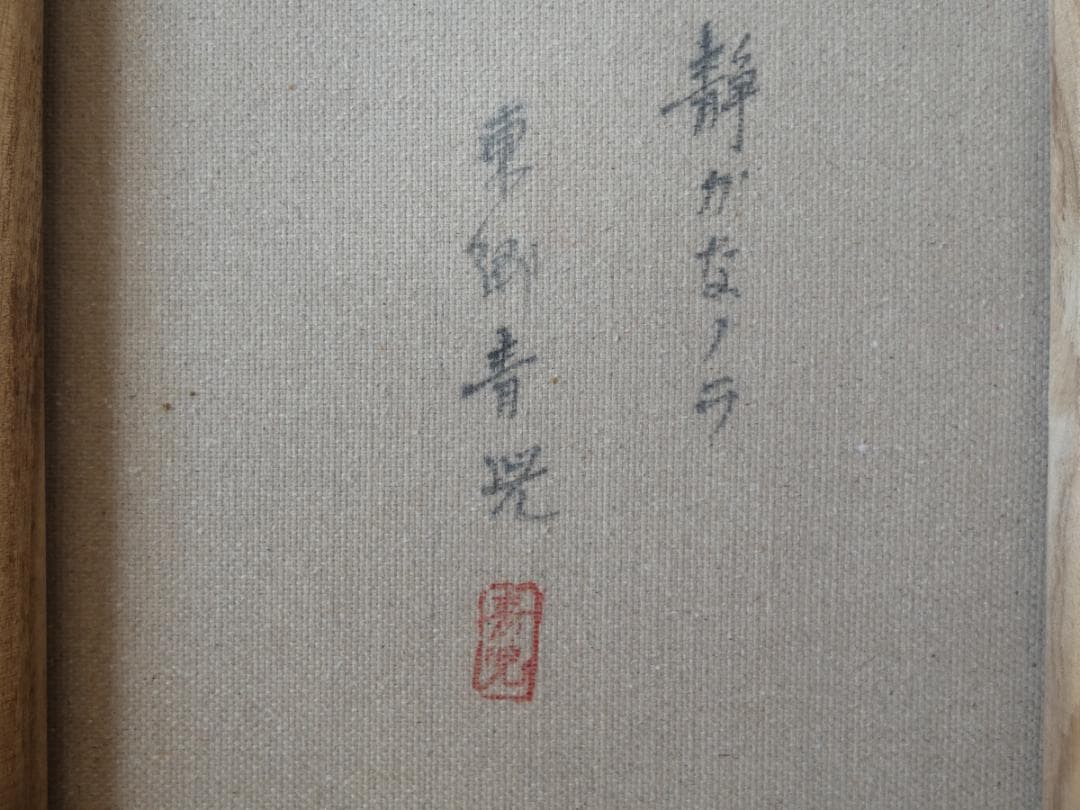 静かなノラ
東郷青児
青児